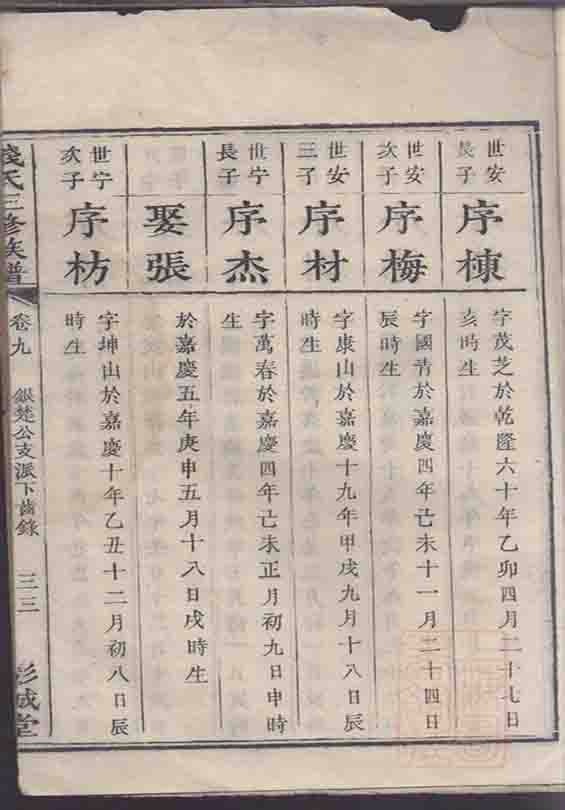 世安
長子
序棟
字茂芝於乾隆六十年乙卯四月二十七日
亥時生
世安
次子
序梅
字國青於嘉慶四年己未十一月二十四日
辰時生
世安
三子
序材
字康山於嘉慶十九年甲戌九月十八日辰
時生
世宁
長子
序杰
字萬春於嘉慶四年己未正月初九日申時
生
娶張
於嘉慶五年庚申五月十八日戌時生
世宁
次子
序枋
字坤山於嘉慶十年乙丑十二月初八日辰
時生
錢氏三修族譜
卷九
銀楚公支派下齒錄
三三
彭城堂